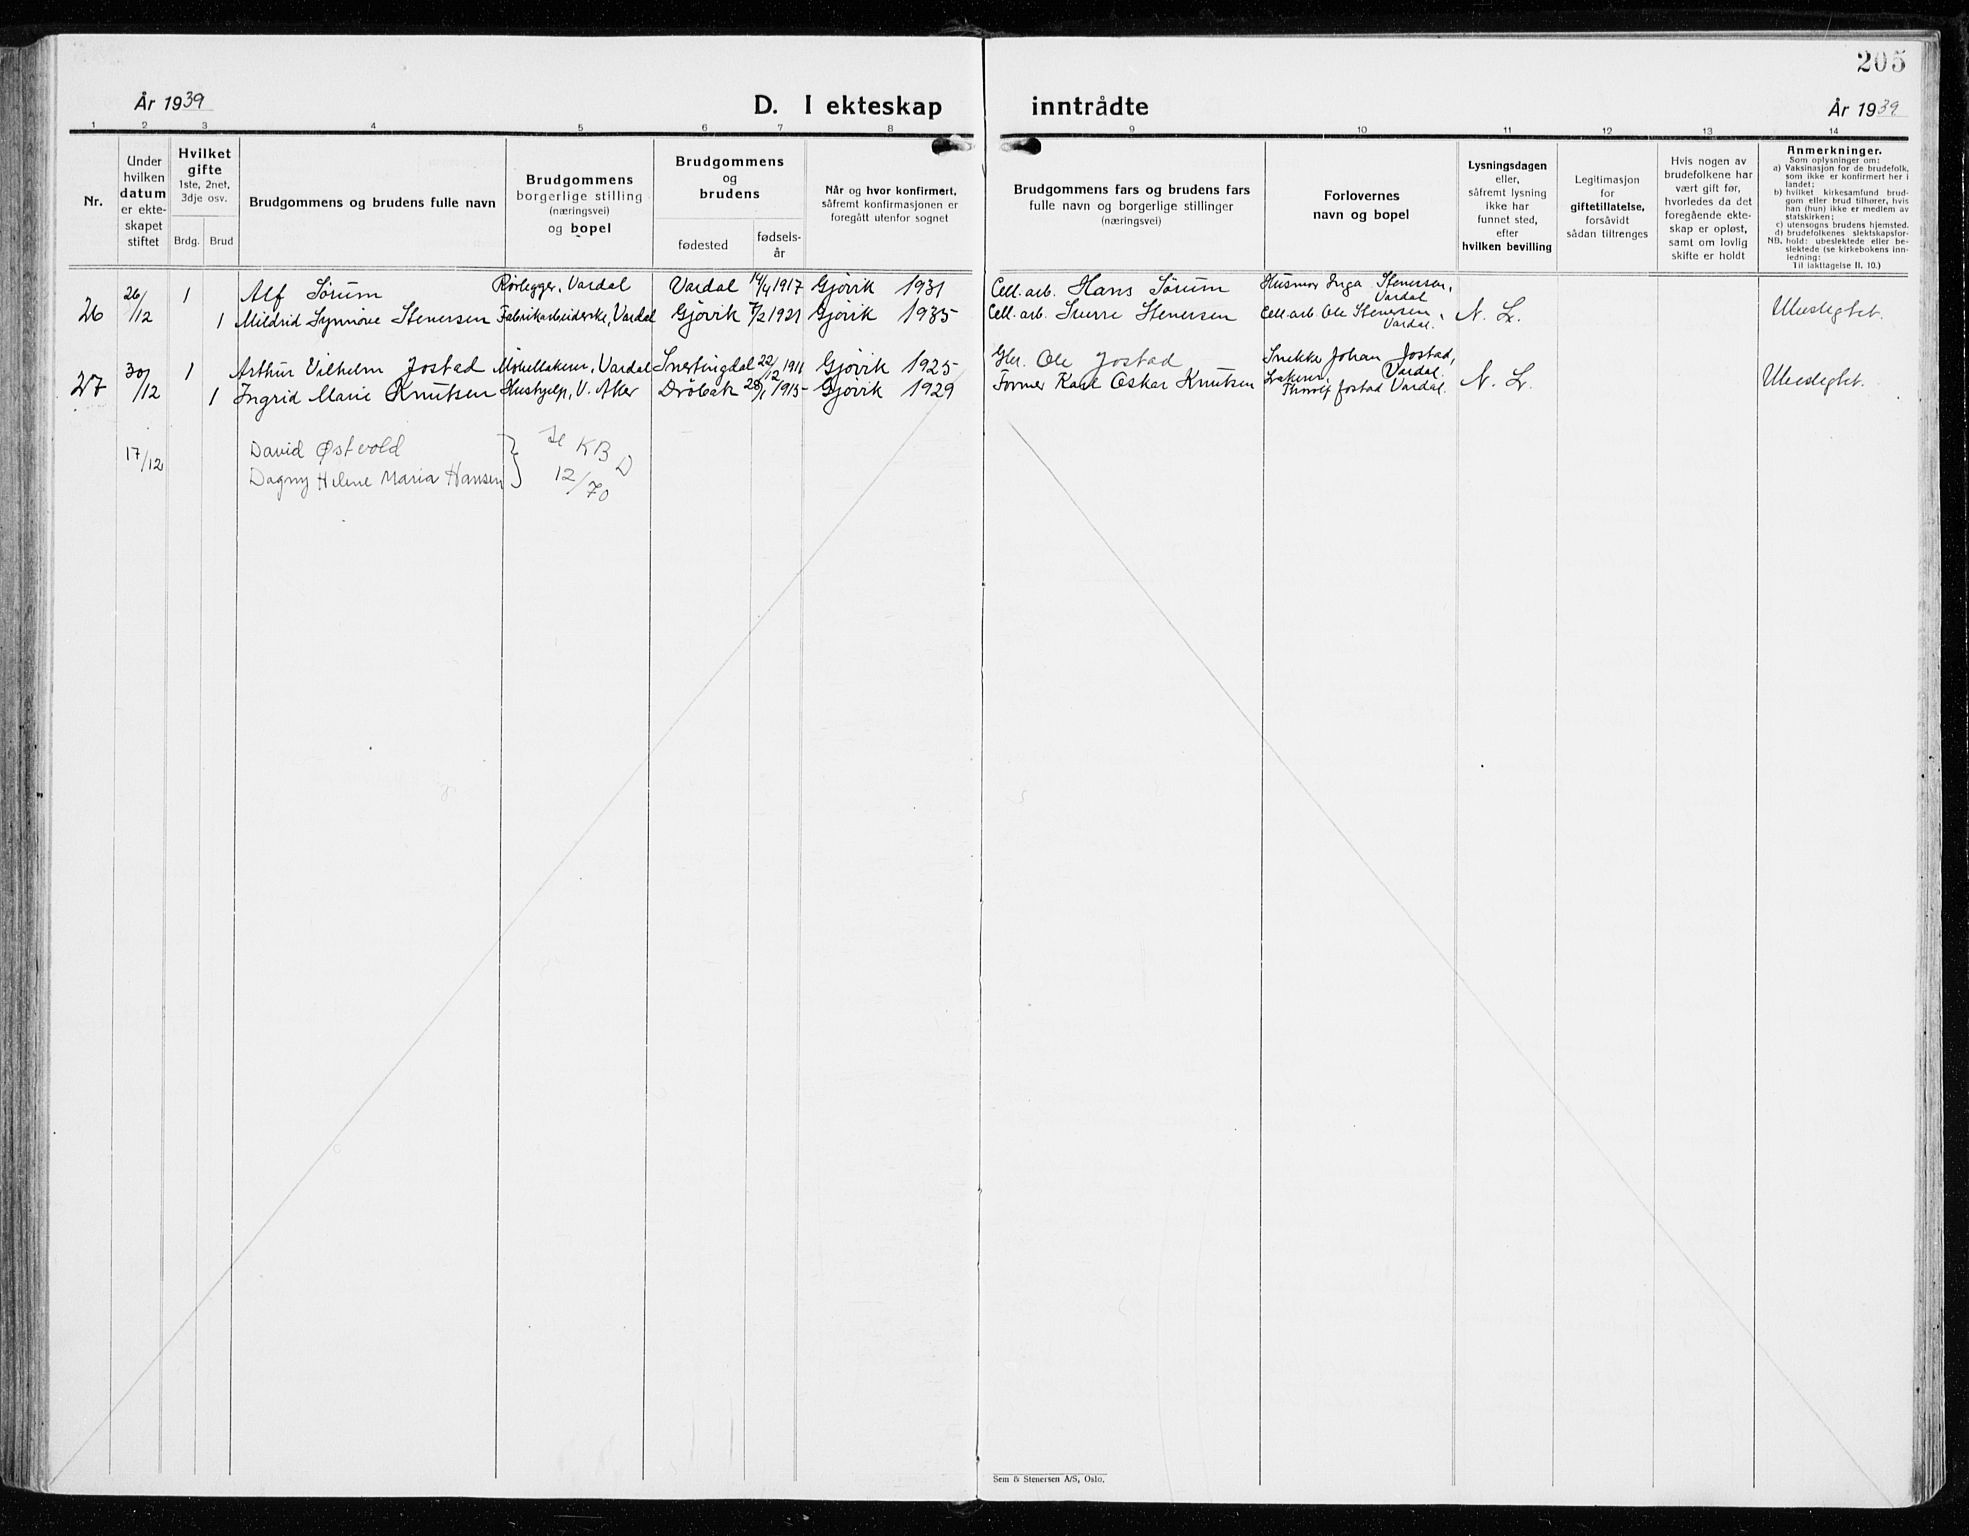 205
År 1939
D. I ekteskap inntrådte
År 1939
1 2 3 4 5 6 7 8 9 10 11 12 13 14
Nr.
Under hvilken datum er ekteskapet stiftet
Hvilket gifte
1ste, 2net, 3dje osv.
Brdg. Brud
Brudgommens og brudens fulle navn
Brudgommens borgerlige stilling (næringsvei) og bopel
Brudgommens og brudens
fødested
fødselsår
Når og hvor konfirmert, såfremt konfirmasjonen er foregått utenfor sognet
Brudgommens fars og brudens fars fulle navn og borgerlige stillinger (næringsvei)
Forlovernes navn og bopel
Lysningsdagen eller, såfremt lysning ikke har funnet sted, efter hvilken bevilling
Legitimasjon for giftetillatelse, forsåvidt sådan tiltrenges
Hvis nogen av brudefolkene har vært gift før, hvorledes da det foregående ekteskap er opløst, samt om lovlig skifte er holdt
Anmerkninger.
Som oplysninger om:
a) Vaksinasjon for de brudefolk, som ikke er konfirmert her i landet;
b) hvilket kirkesamfund brudgom eller brud tilhører, hvis han (hun) ikke er medlem av statskirken;
c) utensogns brudens hjemsted.
d) brudefolkenes slektskapsforhold: ubeslektede eller beslektede (se kirkebokens innledning:
NB.
Til iakttagelse II. 10.)
26 26/12 1 Alf Sørum Rørlegger, Vardal Vardal 14/4 1917 Gjøvik 1931 Cell. arb. Hans Sørum Husmor Inga Stenersen, Vardal
1 Mildrid Synnøve Stenersen Fabrikarbeiderske, Vardal Gjøvik 7/2 1921 Gjøvik 1935 Cell. arb. Sverre Stenersen Cell. arb. Ole Stenersen, Vardal. N. L. Ubeslegtet.
27 30/12 1 Arthur Vilhelm Jostad Møbellakerer, Vardal Snertingdal 22/12 1911 Gjøvik 1925 Ole Jostad Snekker Johan Jostad, Vardal.
1 Ingrid Marie Knutsen Hushjelp, V. Aker Drøbak 28/1 1915 Gjøvik 1929 Former Karl Oskar Knutsen Lakerer Thorolf Jostad Vardal. N. L. Ubeslegtet.
17/12 David Østvold
Dagny Helene Maria Hansen
Se KB D
12/70
Sem & Stenersen A/S, Oslo.